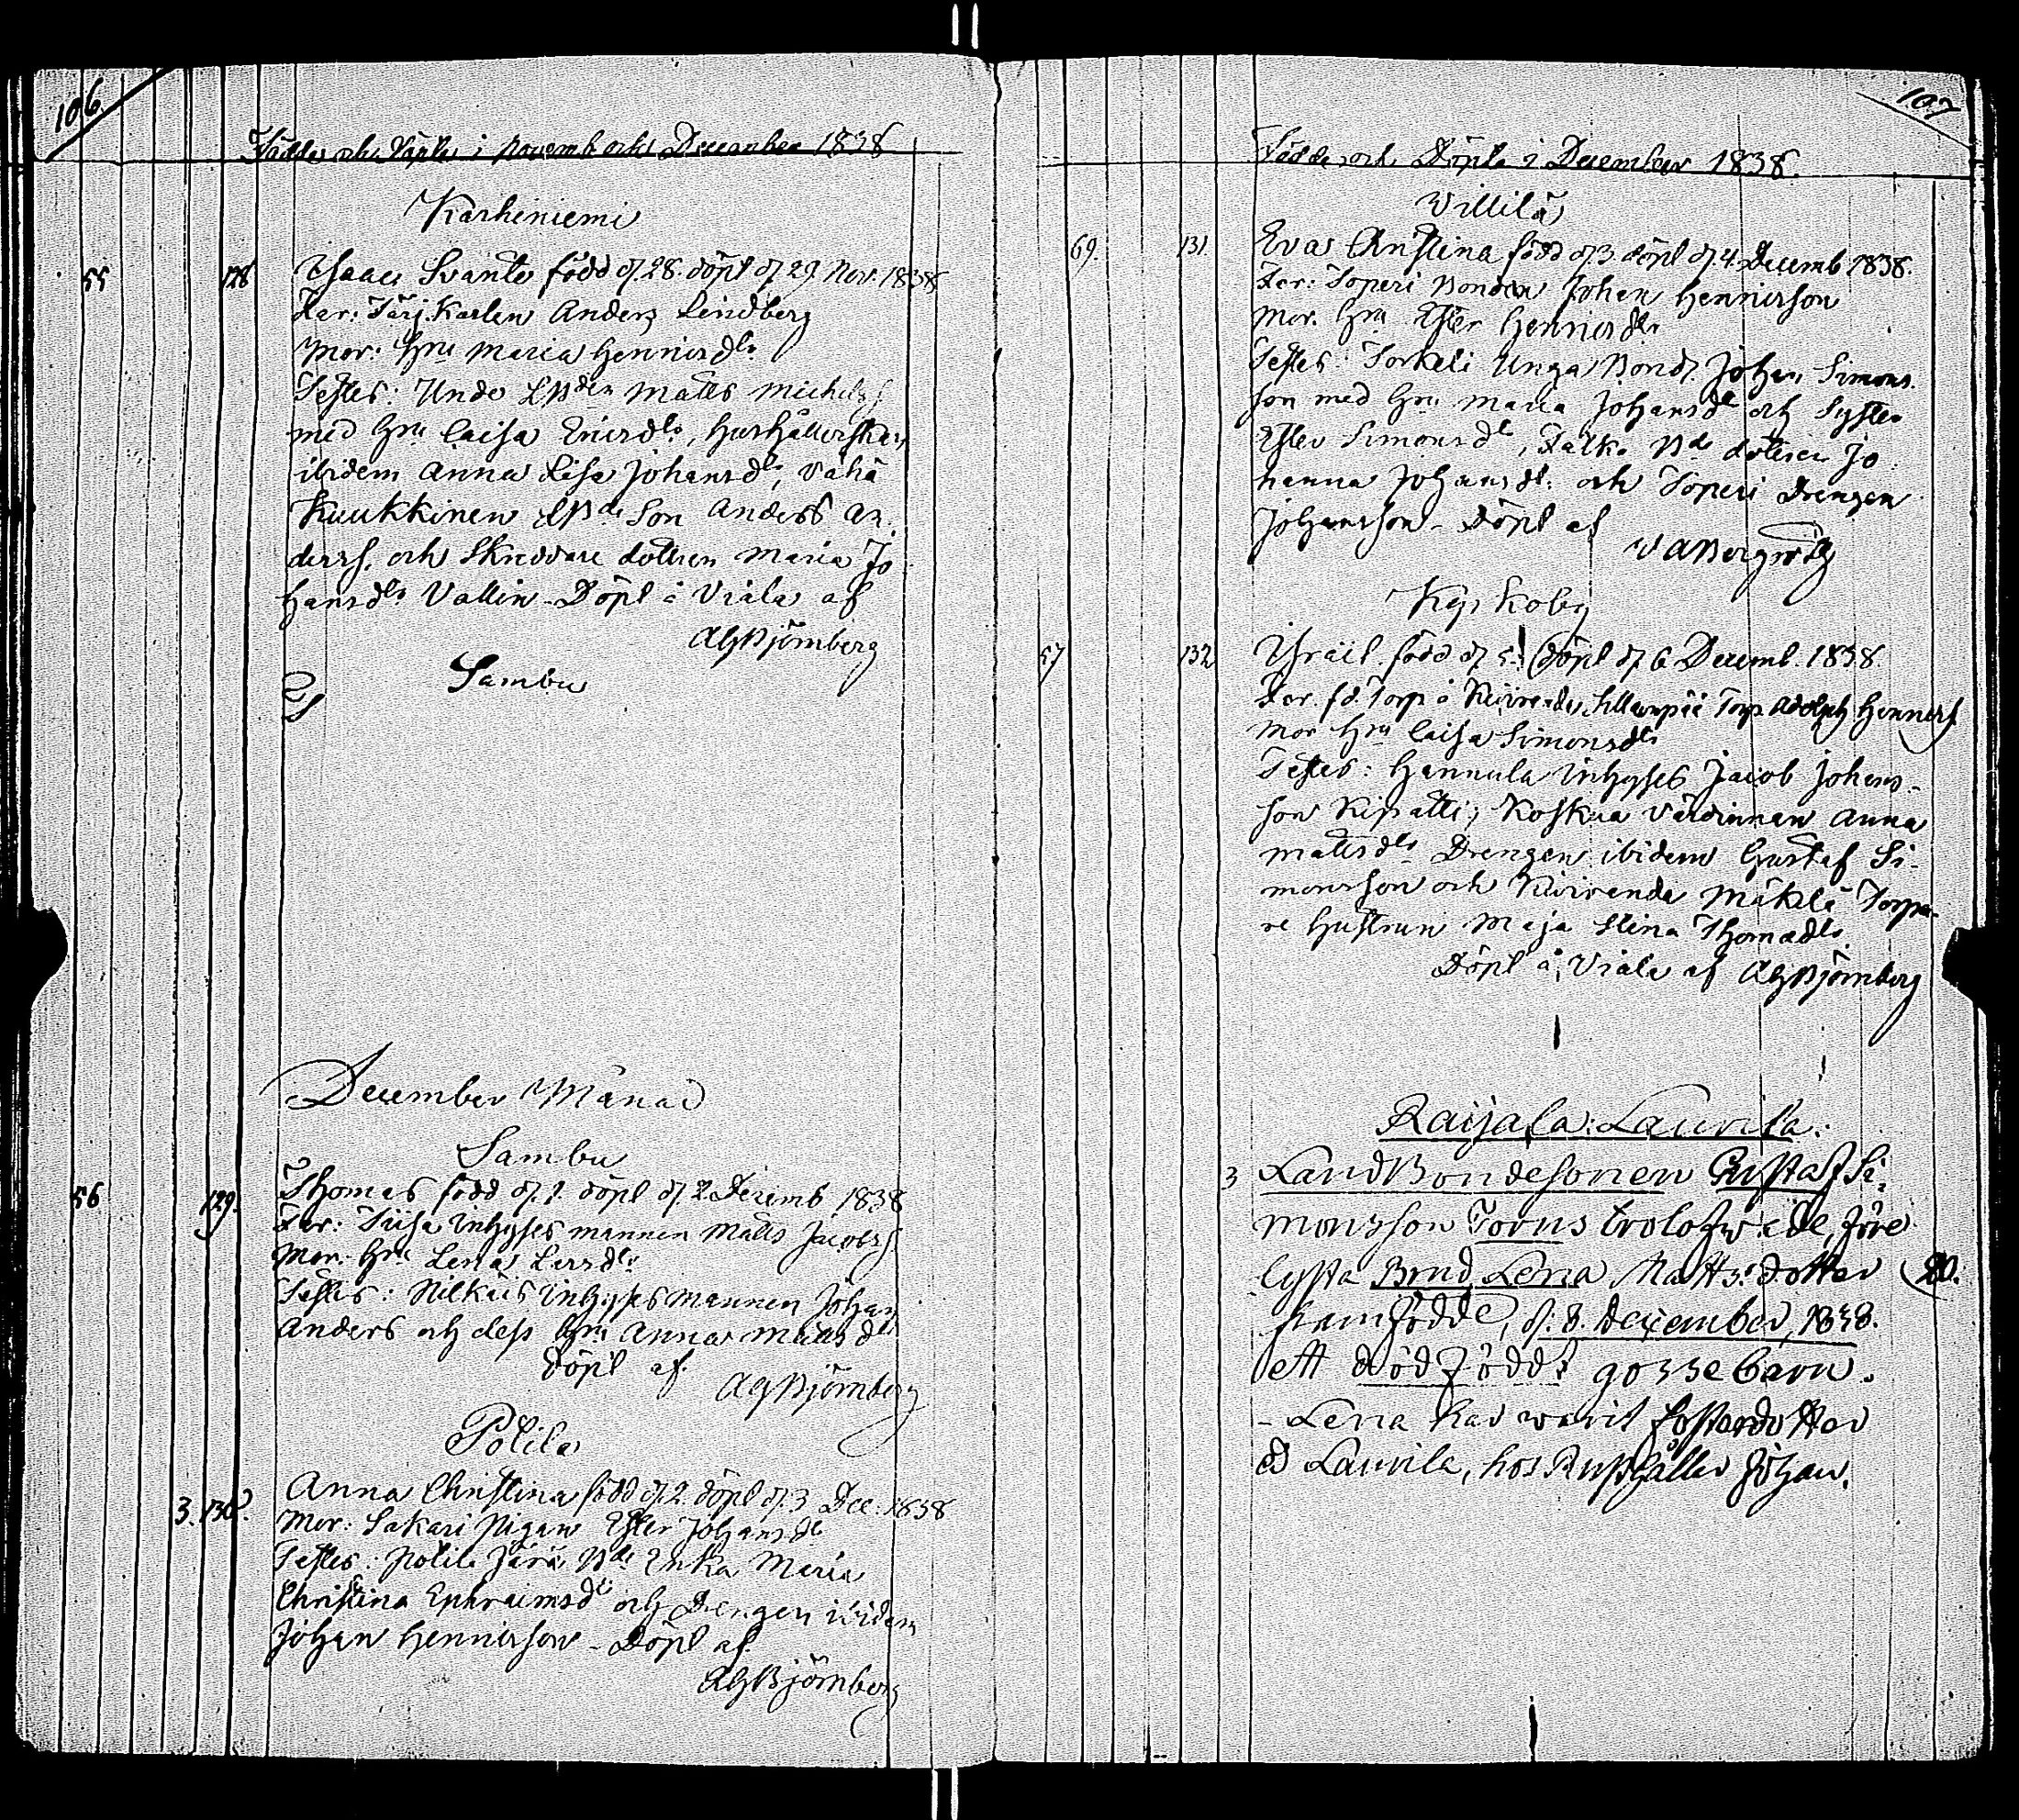 106
Födde och Döpte i Novemb och December 1838
Karhiniemi
55 128 Isaac Svante född d. 28. döpt d. 29 Nov. 1838
Far: Färj.Karlen Anders Lindberg
Mor: Hru Maria Henricsdr
Testes: Undo LBden Matts Michelss
med Hru Caisa Ericsdr, Hushållerskan
ibidem Anna Lisa Johansdr, Vähä
Kuukkinen LBde Son Anders An
derss. och Skreddare dottren Maria Jo
hansdr Vallin - Döpt å Viala af
AGBjörnberg
Sambu
December Månad
Sambu
56 129. Thomas född d. 1. döpt d. 2 Decemb 1838
Far: Inhyses mannen Matts Jacobss
Mor: Hru Lena Larsdr
Testes: Inhyses mannen Johan
Anders och dess Hru Anna Mattsdr
Döpt af
AGBjörnberg
Potila
3. 130. Anna Christina född d. 2. döpt d. 3 Dec: 1838
Mor: Sakari Pigan Ester Johansdr
Testes: Potila Jara Bde Enka Maria
Christina Ephraimsdr och Drengen ibidem
Johan Henricsson - Döpt af.
AGBjörnberg
107
Födde och Döpte i December 1838.
Villilä
69. 131. Eva Christina född d. 3. döpt d. 4. Decemb 1838.
Far: Soperi Bonden Johan Henricsson
Mor. Hru Ester Henricsdr
Testes: Torkeli Unga Bond. Johan Simons
son med Hru Maria Johansdr och Syster
Ester Simonsdr, Falko Bde dottren Jo
hanna Johansdr: och Soperi Drengen
Johansson - Döpt af
Kyrkoby
57 132 Israel. född d. 5. döpt d. 6 Decemb. 1838.
Far. fd. Torp å Torp Adolph Henricss
Mor Hru Caisa Simonsdr
Testes: Hannula Inhyses Jacob Johans-
son Ripatti, Koskua Värdinnan Anna
Mattsdr Drengen ibidem Gustaf Si-
monsson och Mäkelä Torpa-
re Hustrun Maja Stina Thomadr.
Döpt å Viala af AGBjörnberg
Raijala: Laurila:
3 LandBondesonen Gustaf Si-
monsson Torns trolofwade, före
Lysta Brud Lena Matts:dotter 20.
framfödde, d: 8. December, 1838.
ett dödfödt gossebarn.
- Lena har warit fosterdotter
å Laurila, hos Rusthåller Johan.